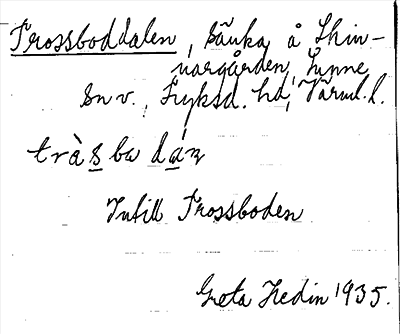 Trossboddalen, sänka å Skin-
nargården, Sunne
sn v., Fryksd. hd, Värml. l.
tràsba dáɳ
Intill Trossboden
Greta Hedin 1935.